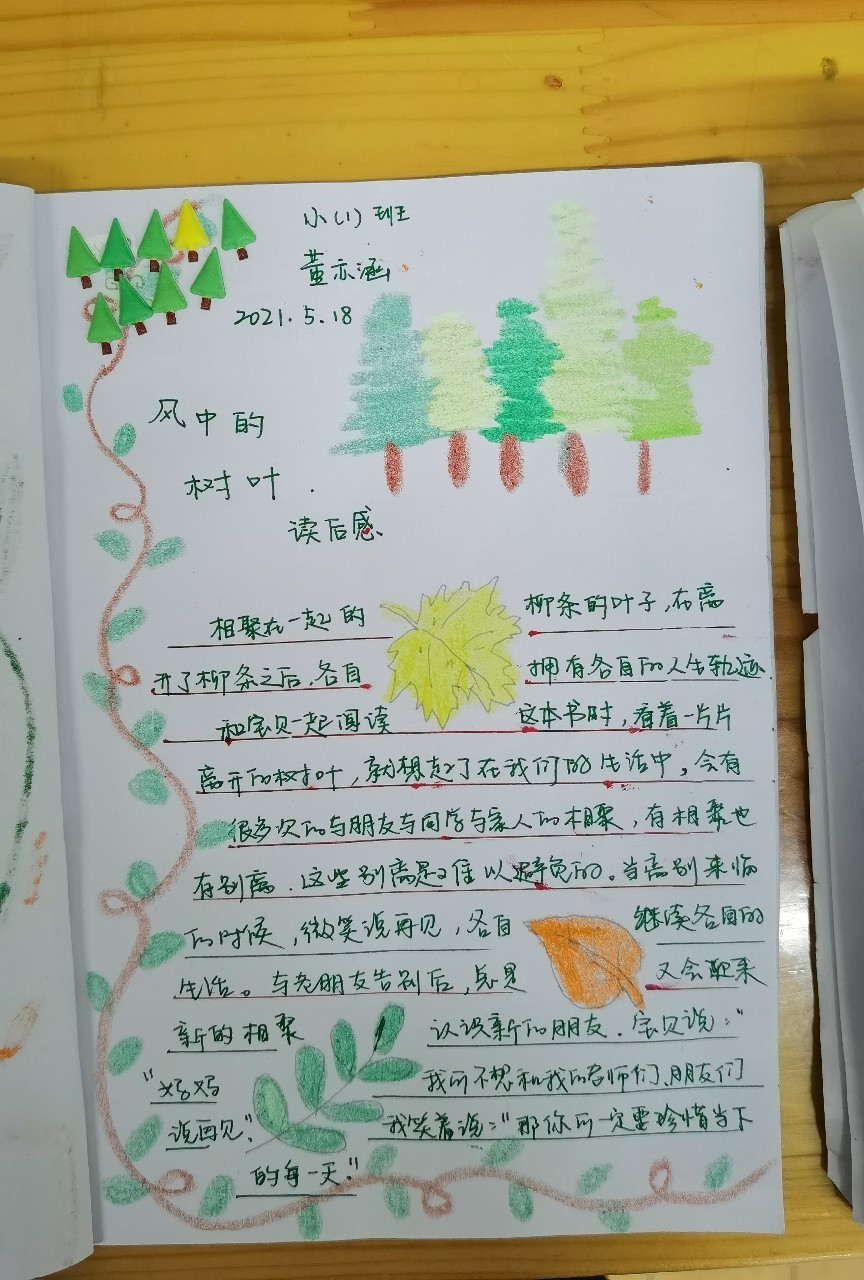 小(1)班
董亦涵
2021.5.18
风中的
树叶.
读后感
相聚在一起的 柳条的叶子,在离
开了柳条之后,各自 拥有各自的人生轨迹.
和宝贝一起阅读 这本书时,看着一片片
离开的树叶,就想起了在我们的生活中,会有
很多次的与朋友与同学与家人的相聚,有相聚也
有别离.这些别离是难以避免的。当离别来临
的时候,微笑说再见,各自 继续各自的
生活。与老朋友告别后,总是 又会迎来
新的相聚 认识新的朋友.宝贝说:"
"妈妈 我可不想和我的老师们,朋友们
说再见". 我笑着说:"那你可一定要珍惜当下
的每一天."